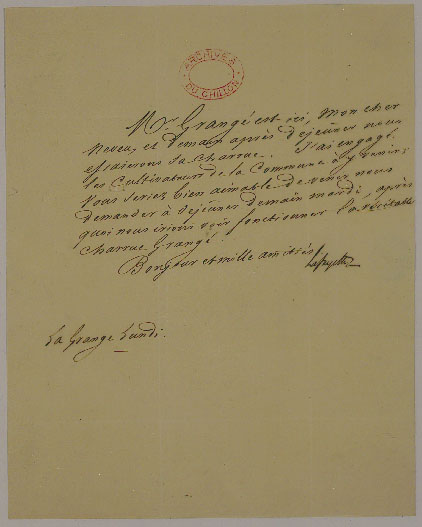 ARCHIVES
DU CHILLON
Mr. Grangé est ici, mon cher
neveu, et demain après déjeuner nous
essaierons sa charrue. J'ai engagé
les Cultivateurs de la Commune à y venir;
Vous seriez bien aimable de venir nous
demander à déjeuner demain mardi, après
quoi nous irions voir fonctionner la véritable
charrue Grangé.
Bonjour et mille amitiés
Lafayette
La Grange Lundi.